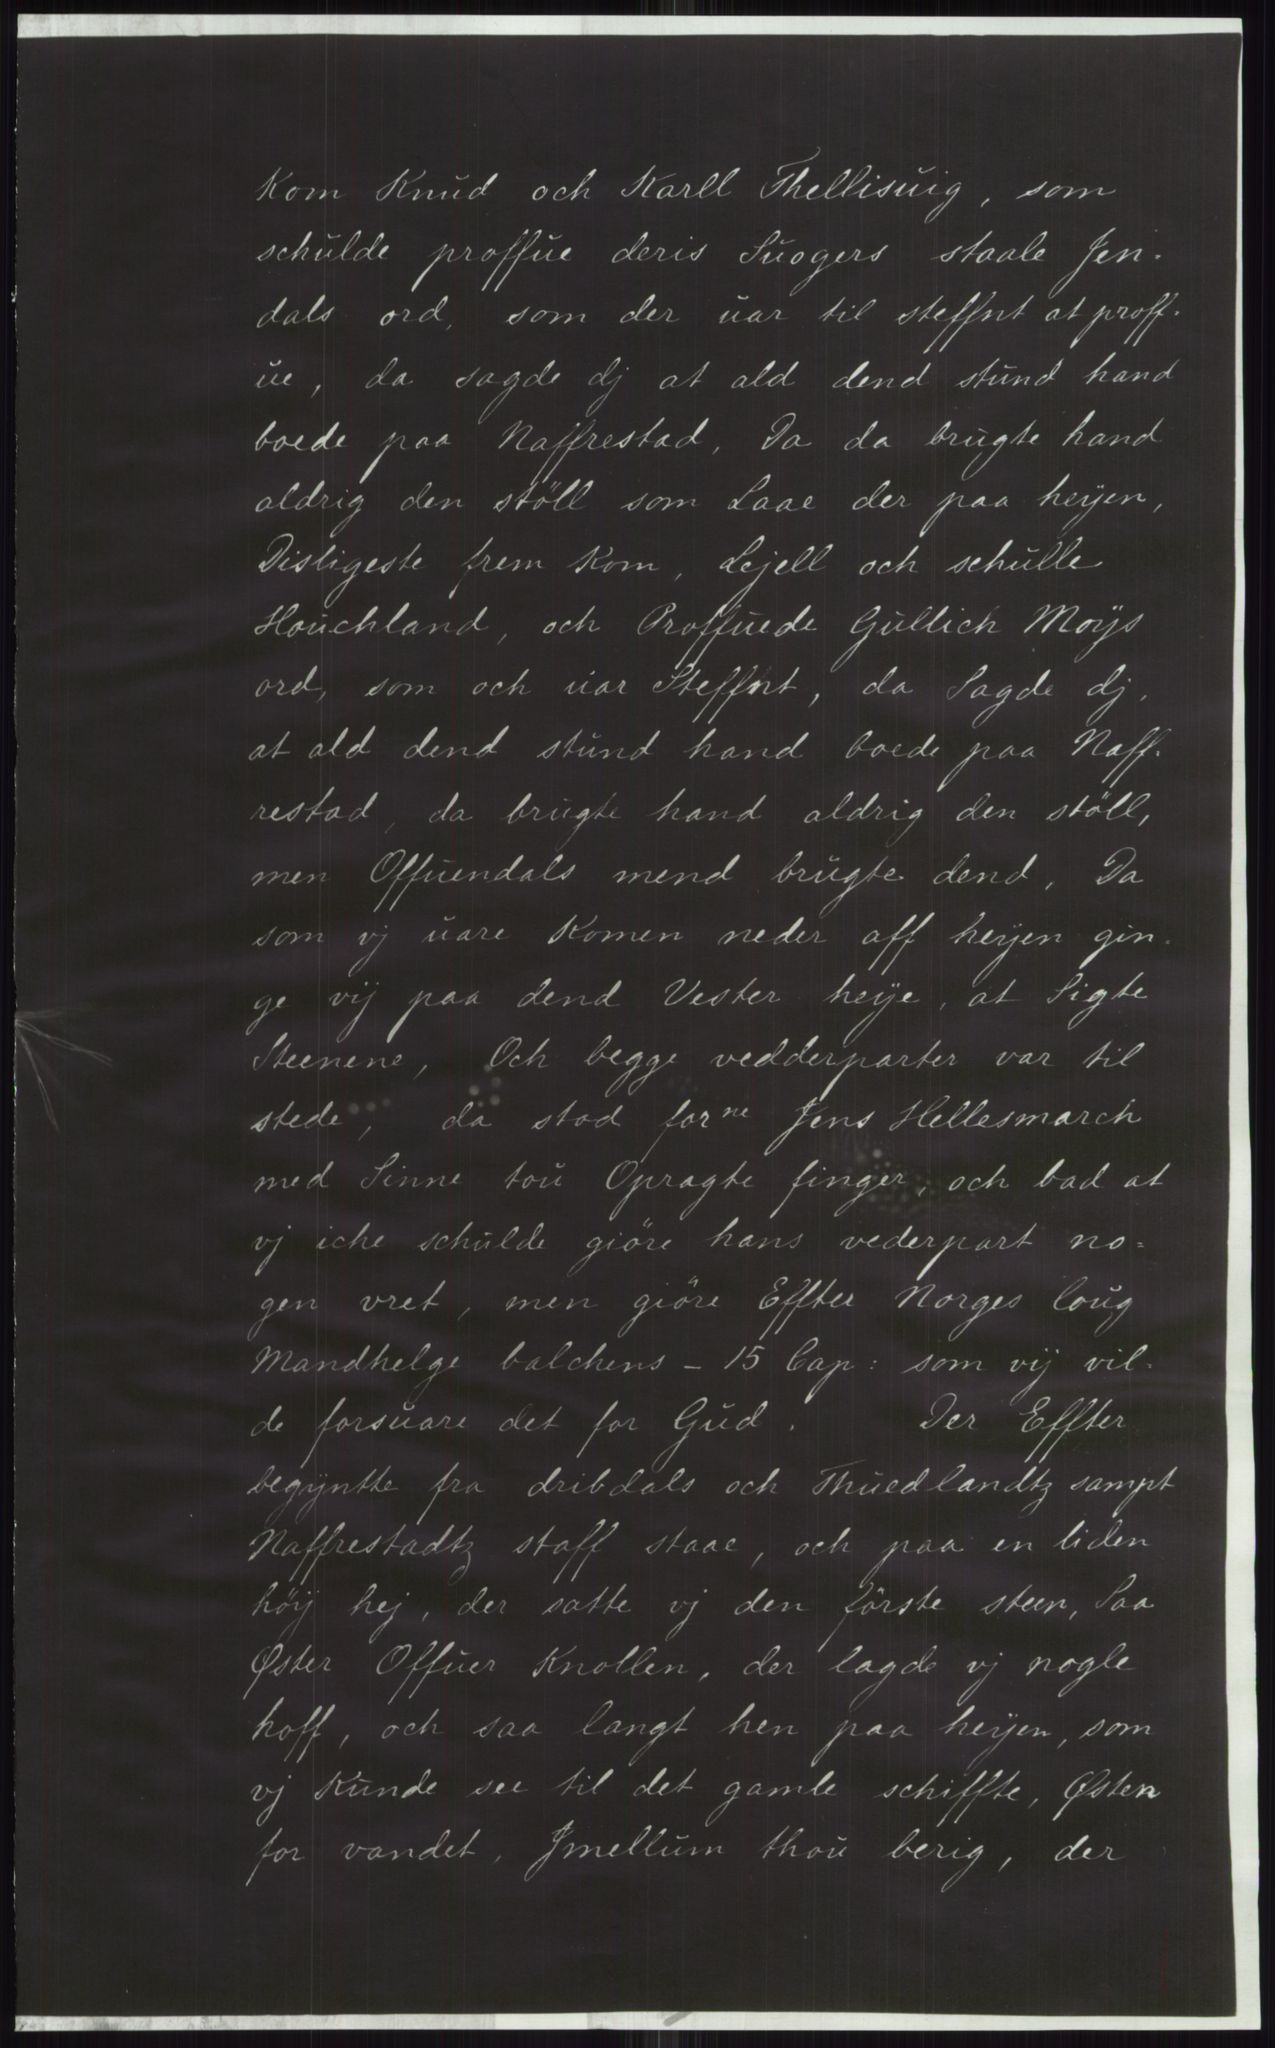 Kom Knud och Karll Thellisuig, som
schulde proffue deris Suogers staale Jen-
dals ord, som der uar til steffnt at proff-
ue, da sagde dj at ald dend stund hand
boede paa Naffrestad, Da da brugte hand
aldrig den stöll som Laae der paa heyen,
Disligeste frem Kom, Lejell och schulle
Houchland, och Proffuede Gullich Moÿs
ord, som och uar Steffnt, da Sagde dj,
at ald dend stund hand boede paa Naff-
restad, da brugte hand aldrig den stöll,
men Offuendals mend brugte dend, Da
som vj uare Komen neder aff heyen gin-
ge vij paa dend Vester heye, at Sigte
Steenene, Och begge vedderparter var til
stede, da stod forne Jens Hellesmarch
med Sinne tou Opragte finger, och bad at
vj iche schulde giöre hans vederpart no=
gen vret, men giöre Effter Norges loug
Mandhelge balchens – 15 Cap: som vij vil-
de forsuare det for Gud. Der Effter
begÿntte fra dribdals och Thuedlandtz sampt
Naffrestadtz staff staae, och paa en liden
höÿ hej, der satte vj den förste steen, Saa
Øster Offuer Knollen, der lagde vj nogle
hoff, och saa langt hen paa heyen, som
vj Kunde see til det gamle schiffte, Østen
for vandet, Jmellum thou berig, der